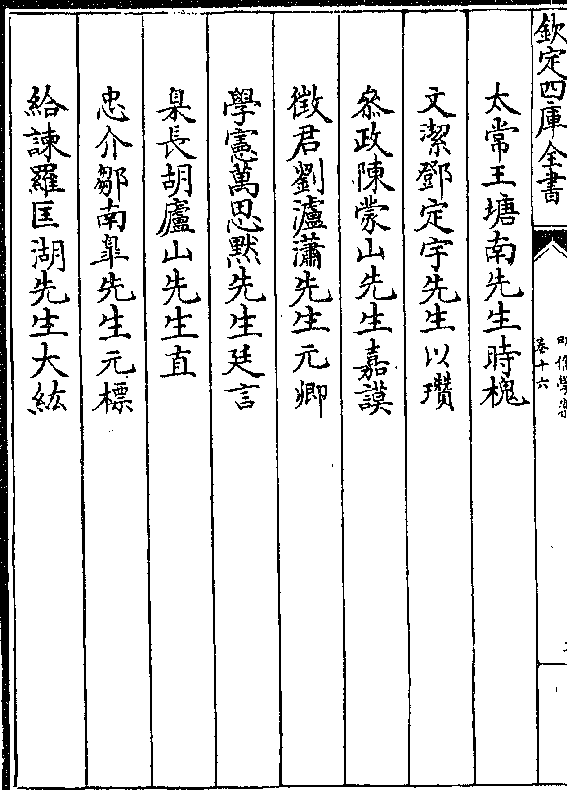 欽定四庫全書
卷十六
太常王塘南先生時槐
文潔鄧定宇先生以瓚
叅政陳蒙山先生嘉謨
徴君劉瀘瀟先生元卿
學憲萬思默先生廷言
臬長胡廬山先生直
忠介鄒南臯先生元標
給諫羅匡湖先生大紘